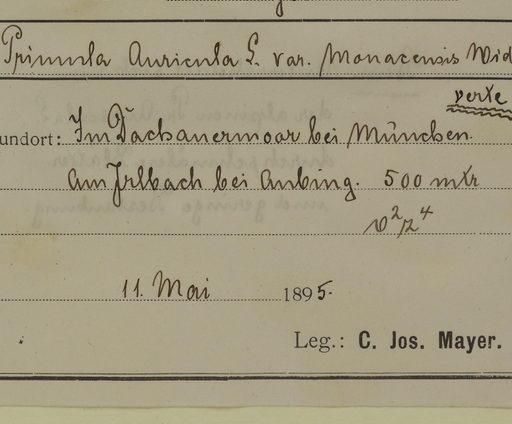 Primula Auricula L. var. Monacensis Wid
verte
undort: Im Dachauermoor bei München.
am Irlbach bei Aubing. 500 mtr
v²/z⁴
11. Mai 1895.
Leg.: C. Jos. Mayer.